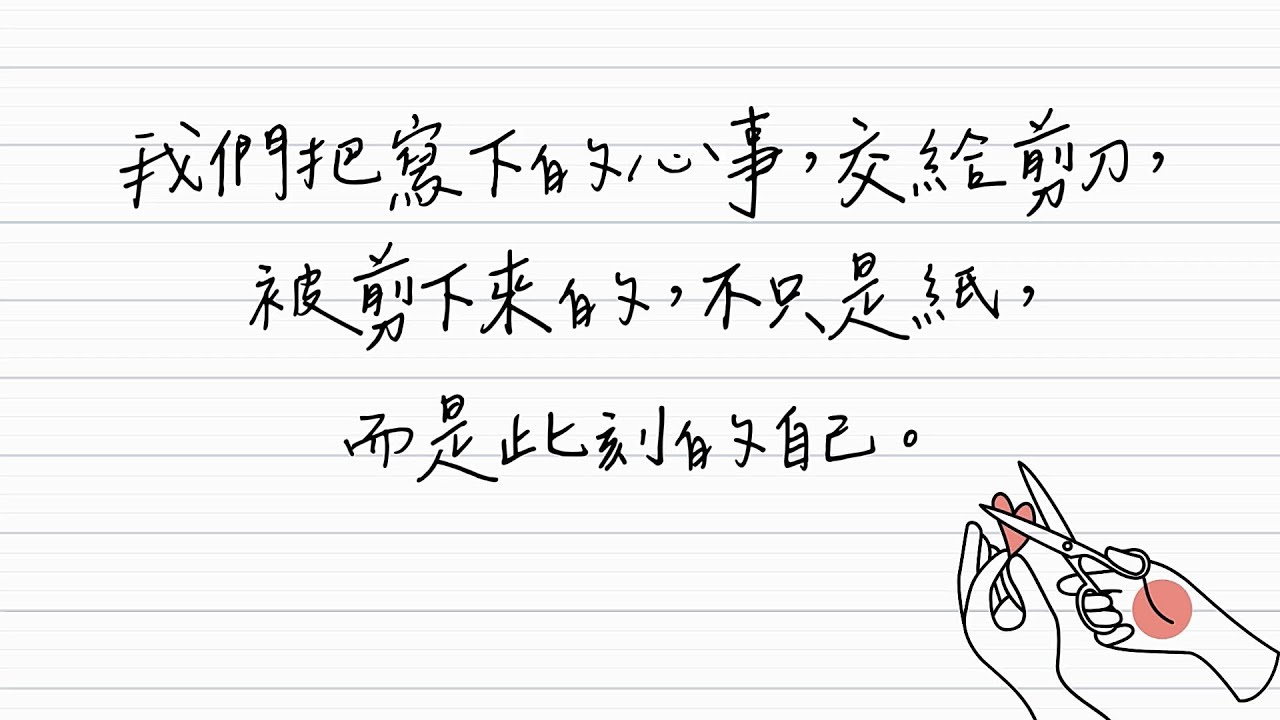 我們把寫下的心事，交給剪刀，
被剪下來的，不只是紙，
而是此刻的自己。